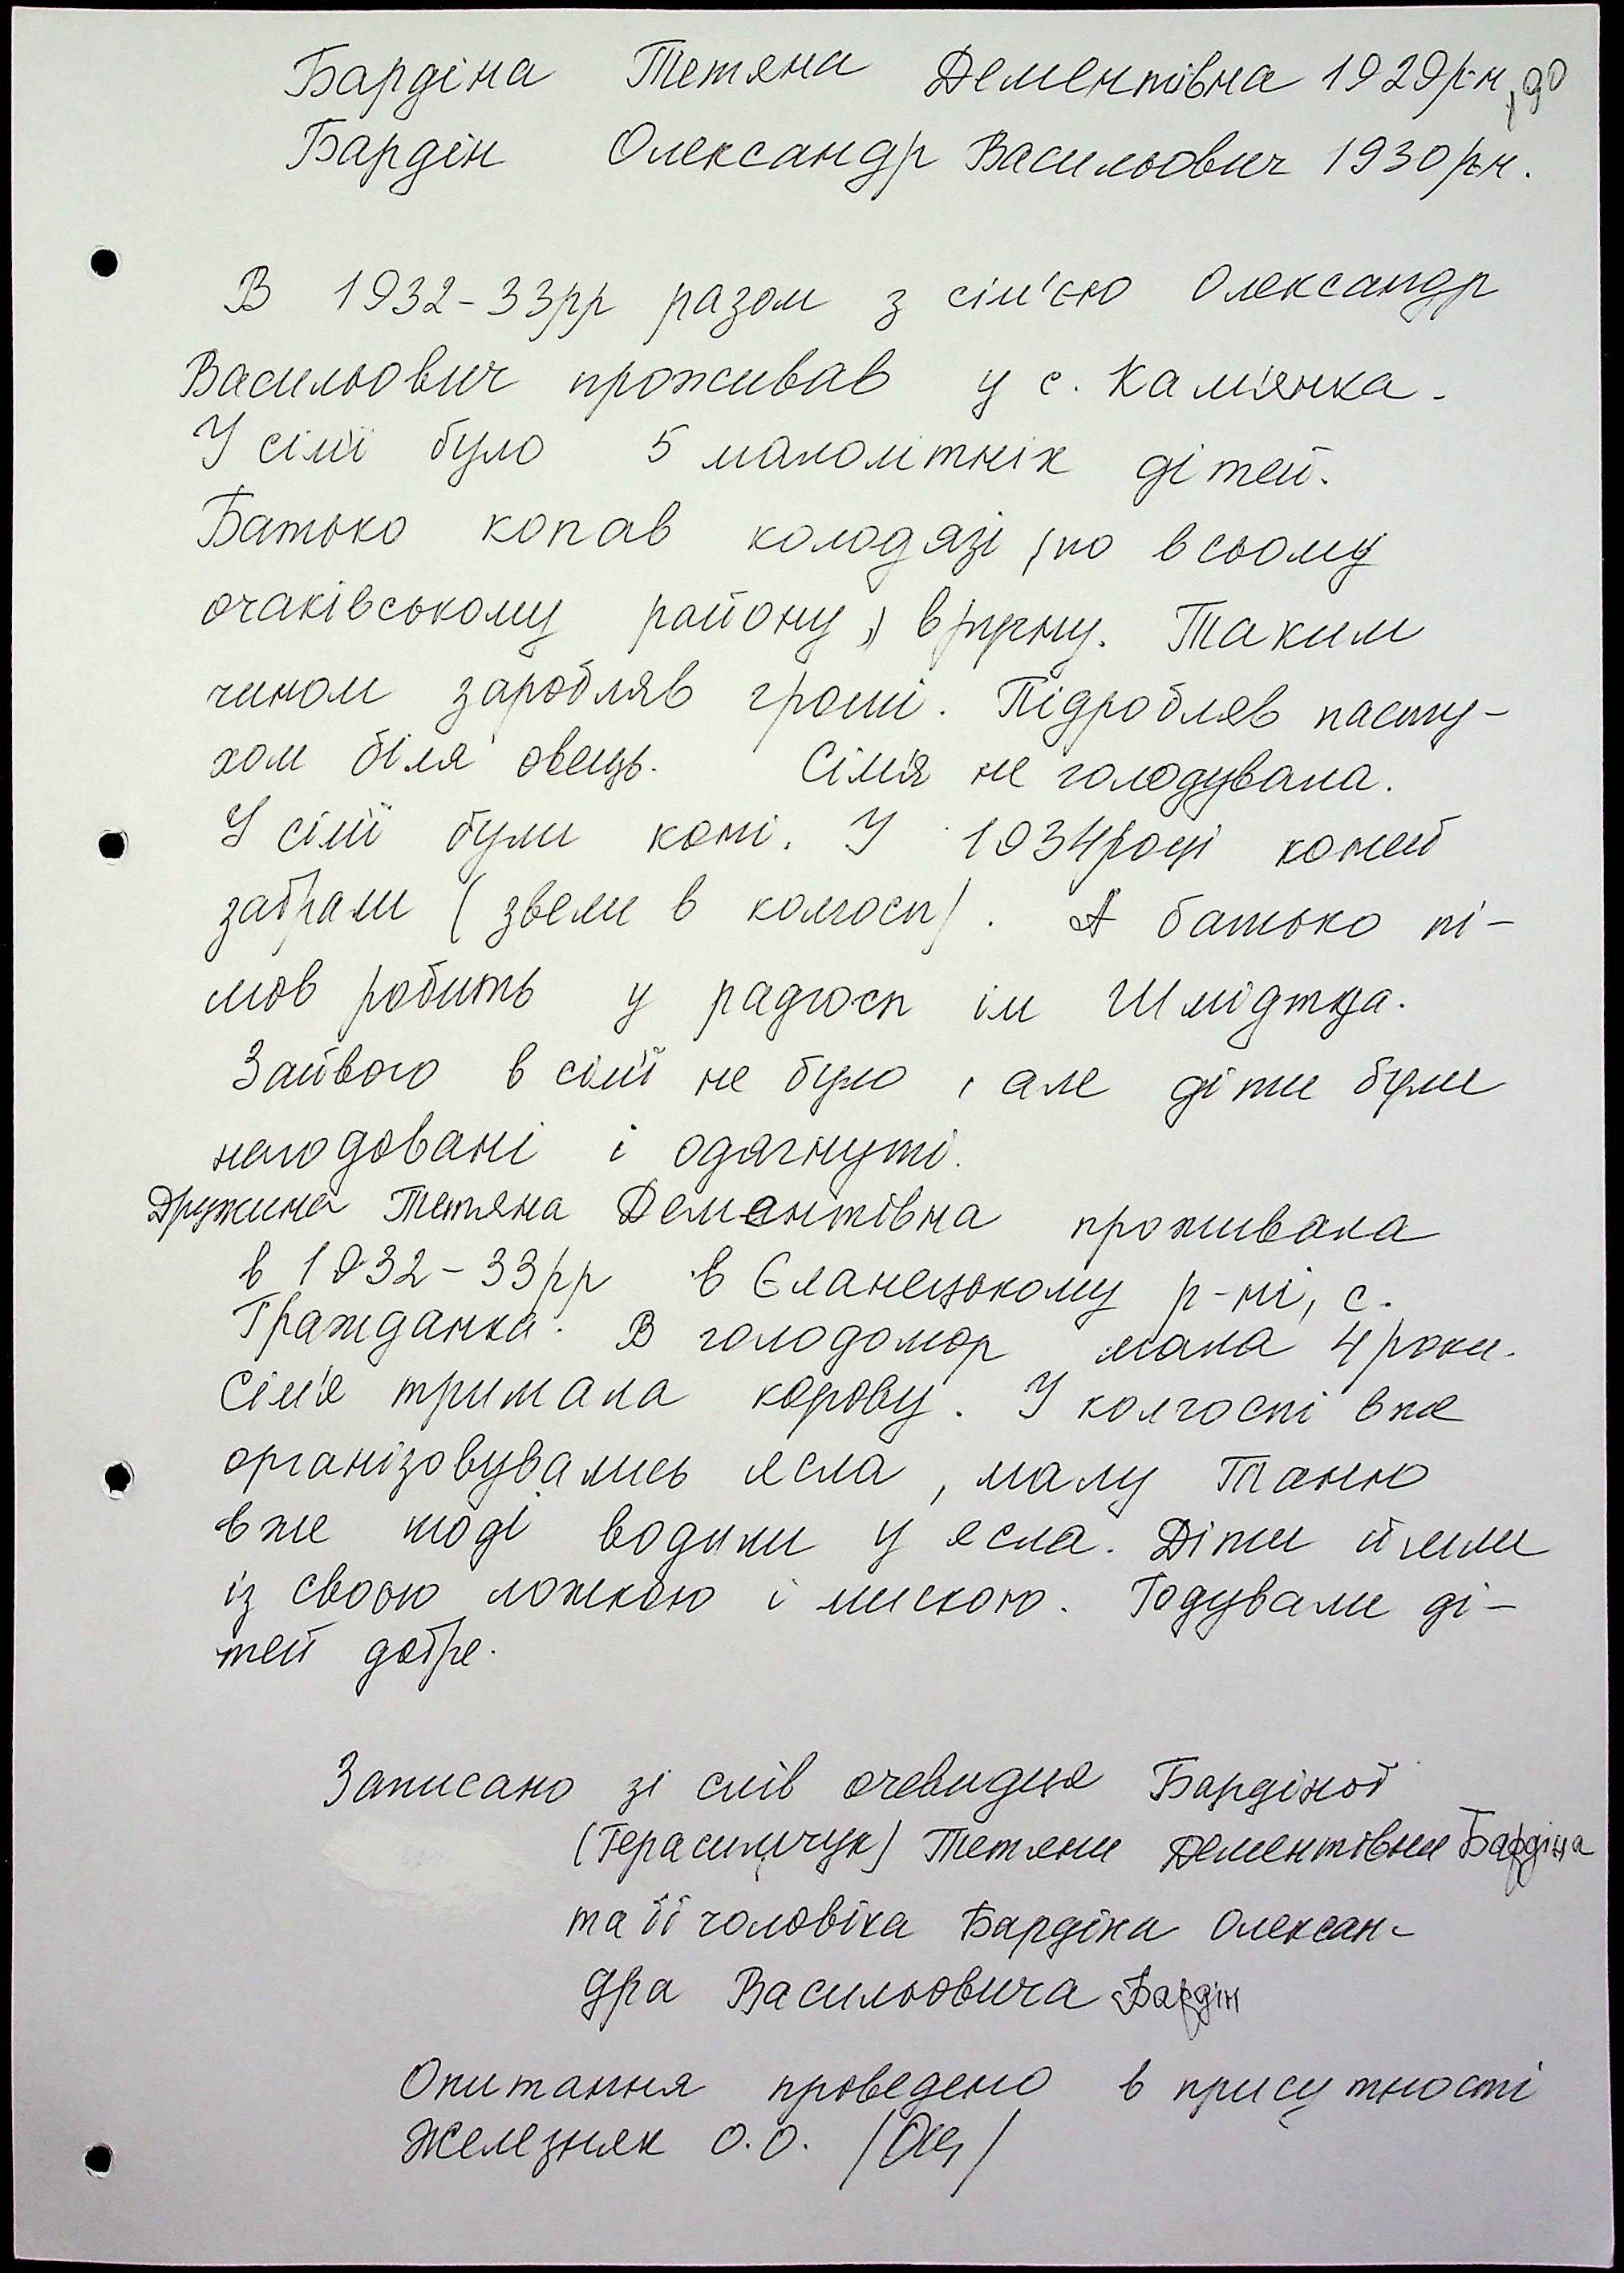 Бардіна Тетяна Дементівна 1929р-н,
Бардін Олександр Васильович 1930р-н.
В 1932-33рр разом з сім'єю Олександр
Васильович проживав у с. Кам'янка.
У сім'ї було 5 малолітніх дітей.
Батько копав колодязі, по всьому
очаківському району, вручну. Таким
чином заробляв гроші. Підробляв пасту-
хом біля овець. Сім'я не голодувала.
У сім'ї були коні. У 1934році коней
забрали (звели в колгосп). А батько пі-
шов робить у радгосп ім Шмідтка.
Зайвого в сім'ї не було, але діти були
нагодовані і одягнуті.
Дружина Тетяна Дементівна проживала
в 1932-33рр в Єланецькому р-ні, с.
Гражданка. В голодомор мала 4 роки.
Сім'я тримала корову. У колгоспі вже
організовувались ясла, малу Таню
вже тоді водили у ясла. Діти йшли
із своєю ложкою і мискою. Годували ді-
тей добре.
Записано зі слів очевидця Бардіної
(Герасимчук) Тетяни Дементівни Бардіна
та її чоловіка Бардіна Олексан-
дра Васильовича Бардін
Опитання проведено в присутності
Железняк О.О.